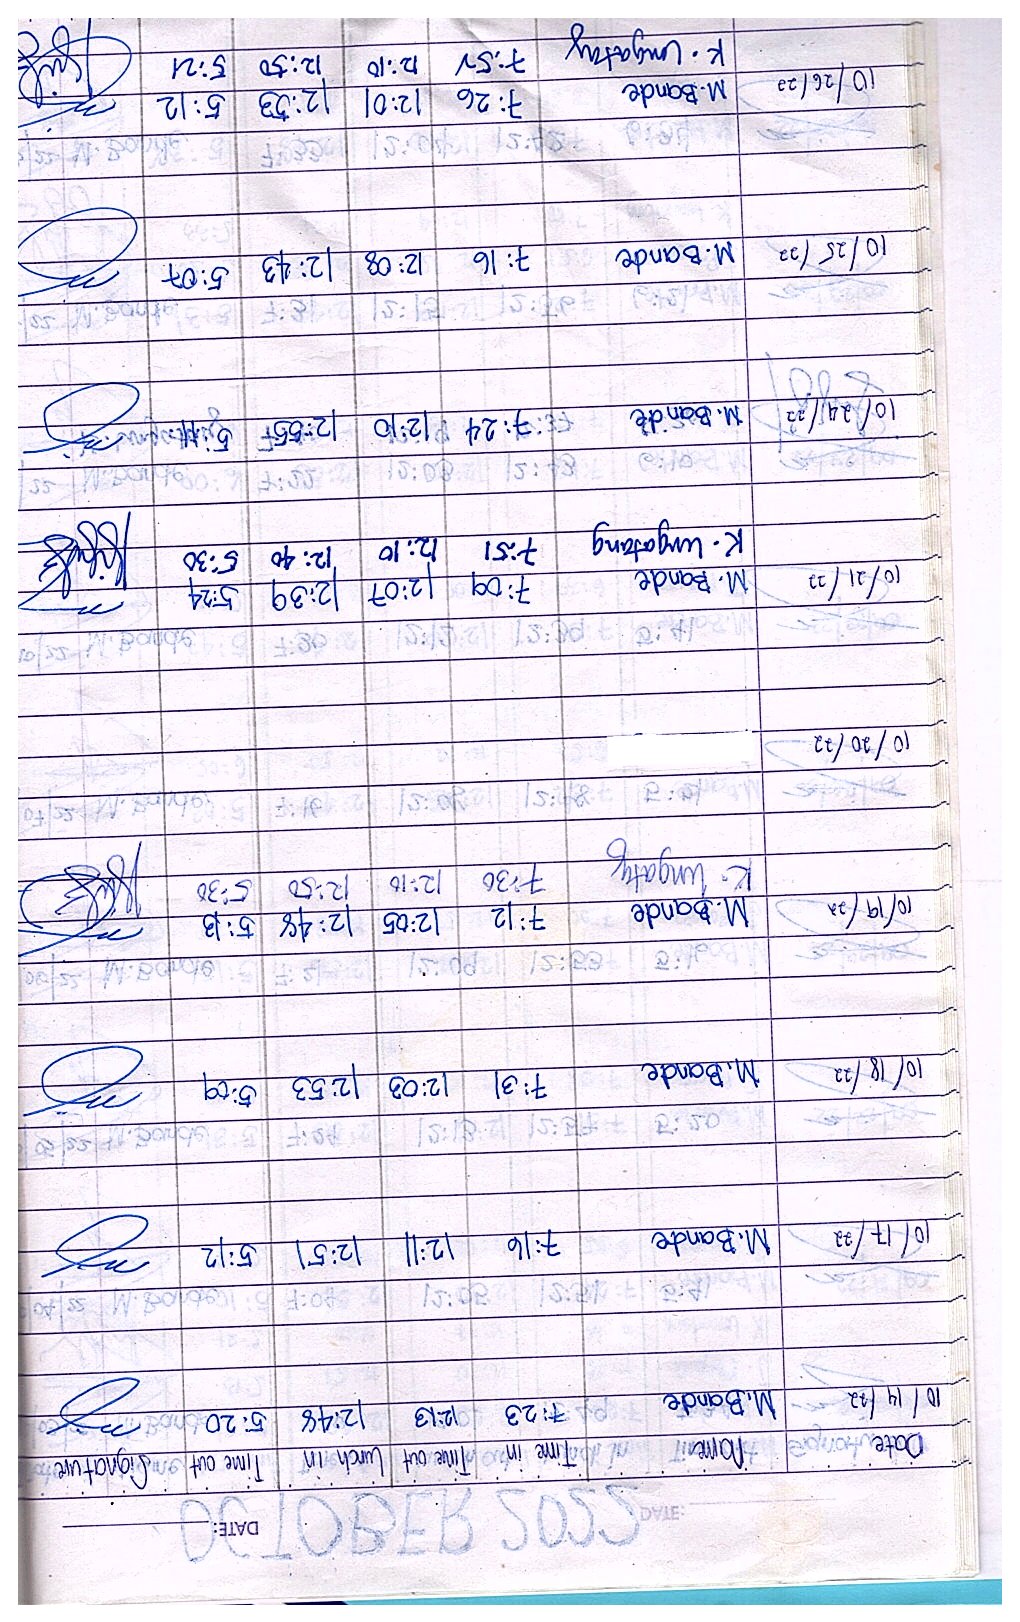 DATE:
Date Name Time in Time out Lunch in Time out Signature
10/14/22 M.Bande 7:23 12:13 12:48 5:20
10/17/22 M.Bande 7:16 12:11 12:51 5:12
10/18/22 M.Bande 7:31 12:03 12:53 5:09
10/19/22 M.Bande 7:12 12:05 12:48 5:13
K. 7:30 12:10 12:50 5:30
10/20/22
10/21/22 M.Bande 7:09 12:07 12:39 5:24
K. Ungatang 7:51 12:10 12:40 5:30
10/24/22 M.Bande 7:24 12:10 12:55
10/25/22 M.Bande 7:16 12:08 12:43 5:07
10/26/22 M.Bande 7:26 12:01 12:53 5:12
K. 12:10 12:50 5:21